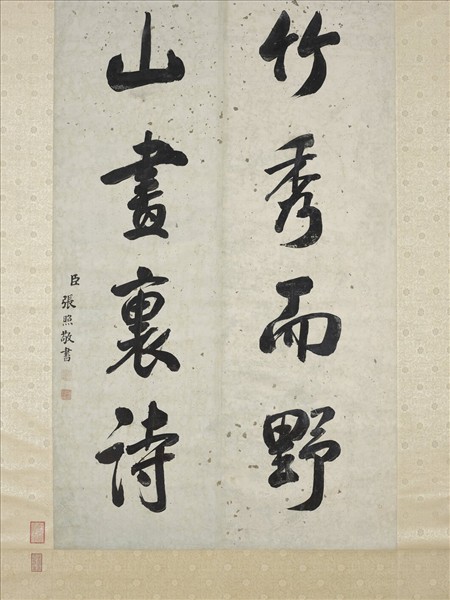 竹秀而野
山畫裏詩
臣張照敬書